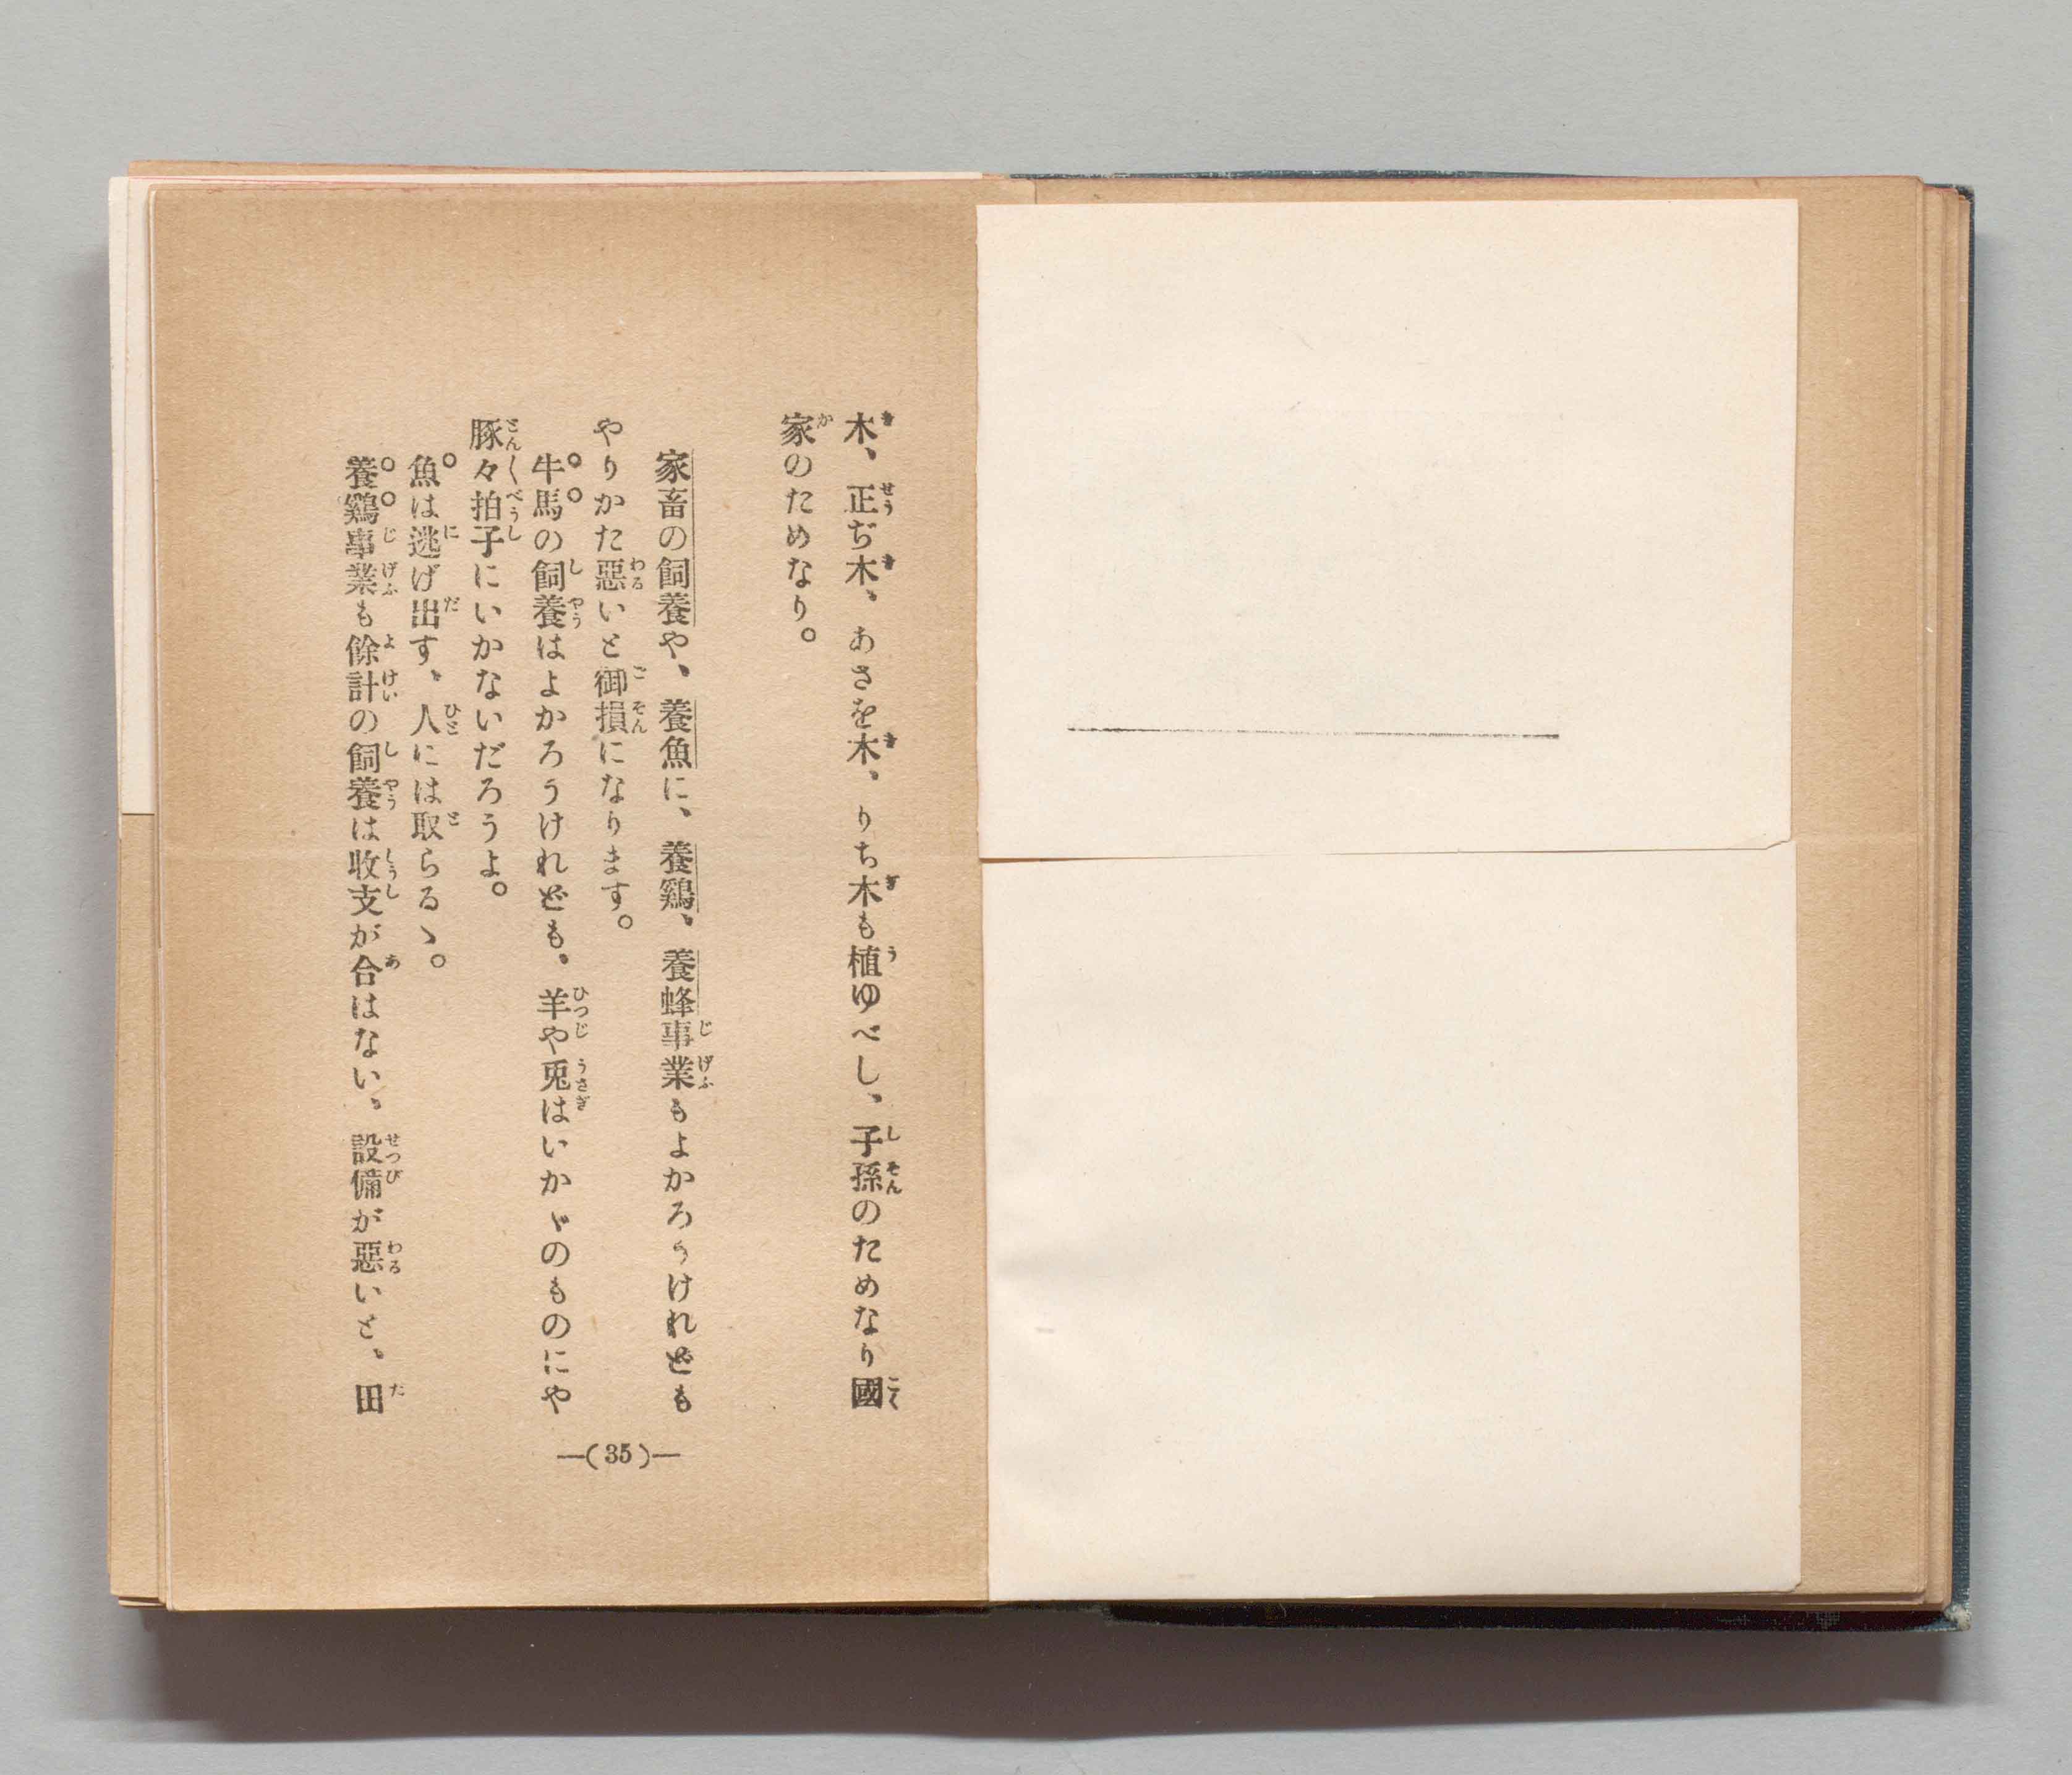 木、正ぢ木、あさを木、りち木も植ゆべし、子孫のためなり國
家のためなり。
家畜の飼養や、養魚に、養鷄、養蜂事業もよかろうけれども
やりかた惡いと御損になります。
牛馬の飼養はよかろうけれども、羊や兎はいかゞのものにや
豚々拍子にいかないだろうよ。
魚は逃げ出す、人には取らるゝ。
養鷄事業も餘計の飼養は收支が合はない、設備が惡いと、田
—(35)—